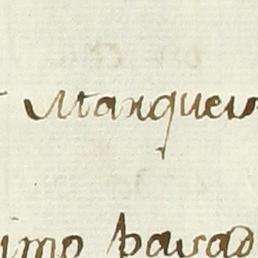 Marques
imo pavad